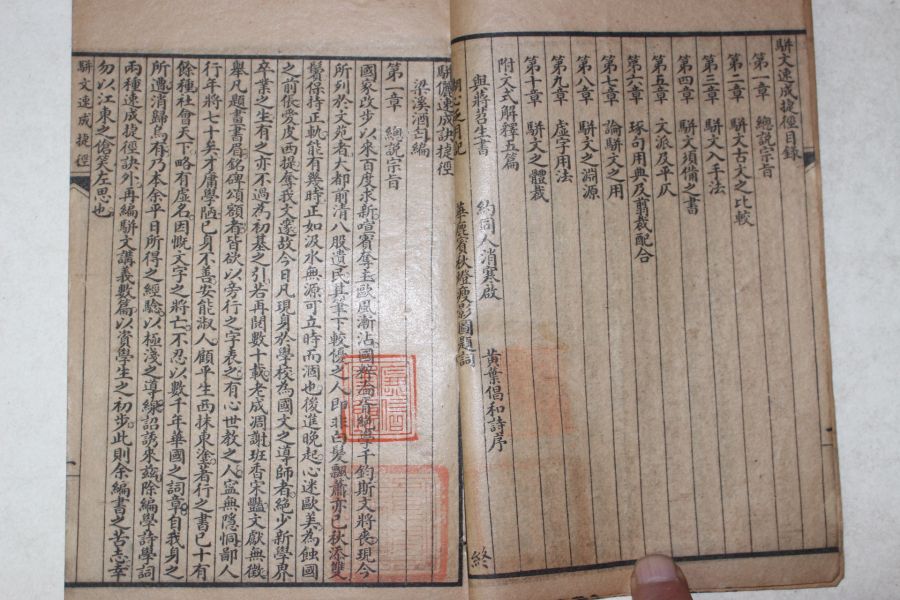 駢文速成捷徑目錄
第一章 總說宗旨
第二章 駢文古文之比較
第三章 駢文入手法
第四章 駢文須備之書
第五章 文派及平仄
第六章 琢句用典及剪裁配合
第七章 論駢文之用
第八章 駢文之淵源
第九章 虛字用法
第十章 駢文之體裁
附文式解釋五篇
與蔣苕生書 約同人消寒啟 黃葉倡和詩序
秋燈瘦影圖題詞 終
駢儷速成訣捷徑
梁溪酒丐編
第一章 總說宗旨
國家改步以來百度求新喧賓奪主歐風漸沾國粹淪胥絕學千鈞斯文將喪現今
所列於文苑者大都前清八股遺民其筆下較優之人即非白髮飄蕭亦已秋添雙
鬢保持正軌能有幾時正如汲水無源可立時而涸也後進晚起心迷歐美為蝕國
之前倀愛皮西提奪我文邃故今日凡現身於學校為國文之導師者絕少新學界
卒業之生有之亦不過為初基之引若再閱數十載老成凋謝班香宋艷文獻無徵
舉凡題書書眉銘碑頌額者皆欲以旁行之字表之有心世教之人寧無隱恫鄙人
行年將七十矣才庸學陋已身不善安能淑人顧平生西抹東塗著行之書已十有
餘種社會天下略有虛名因慨文字之將亡不忍以數千年華國之詞章自我身之
所遭消歸烏有乃本余平日所得之經驗以極淺之導線詔誘來茲除編學詩學詞
兩種速成捷徑訣外再編駢文講義數篇以資學生之初步此則余編書之苦志幸
勿以江東之傖笑左思也
駢文速成捷徑